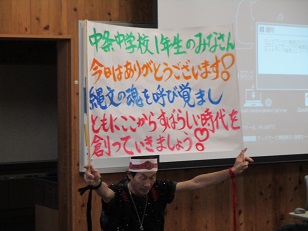 中条中学校1年生のみなさん
今日はありがとうございます!
縄文の魂を呼び覚まし
ともにここからすばらしい時代を
創っていきましょう!